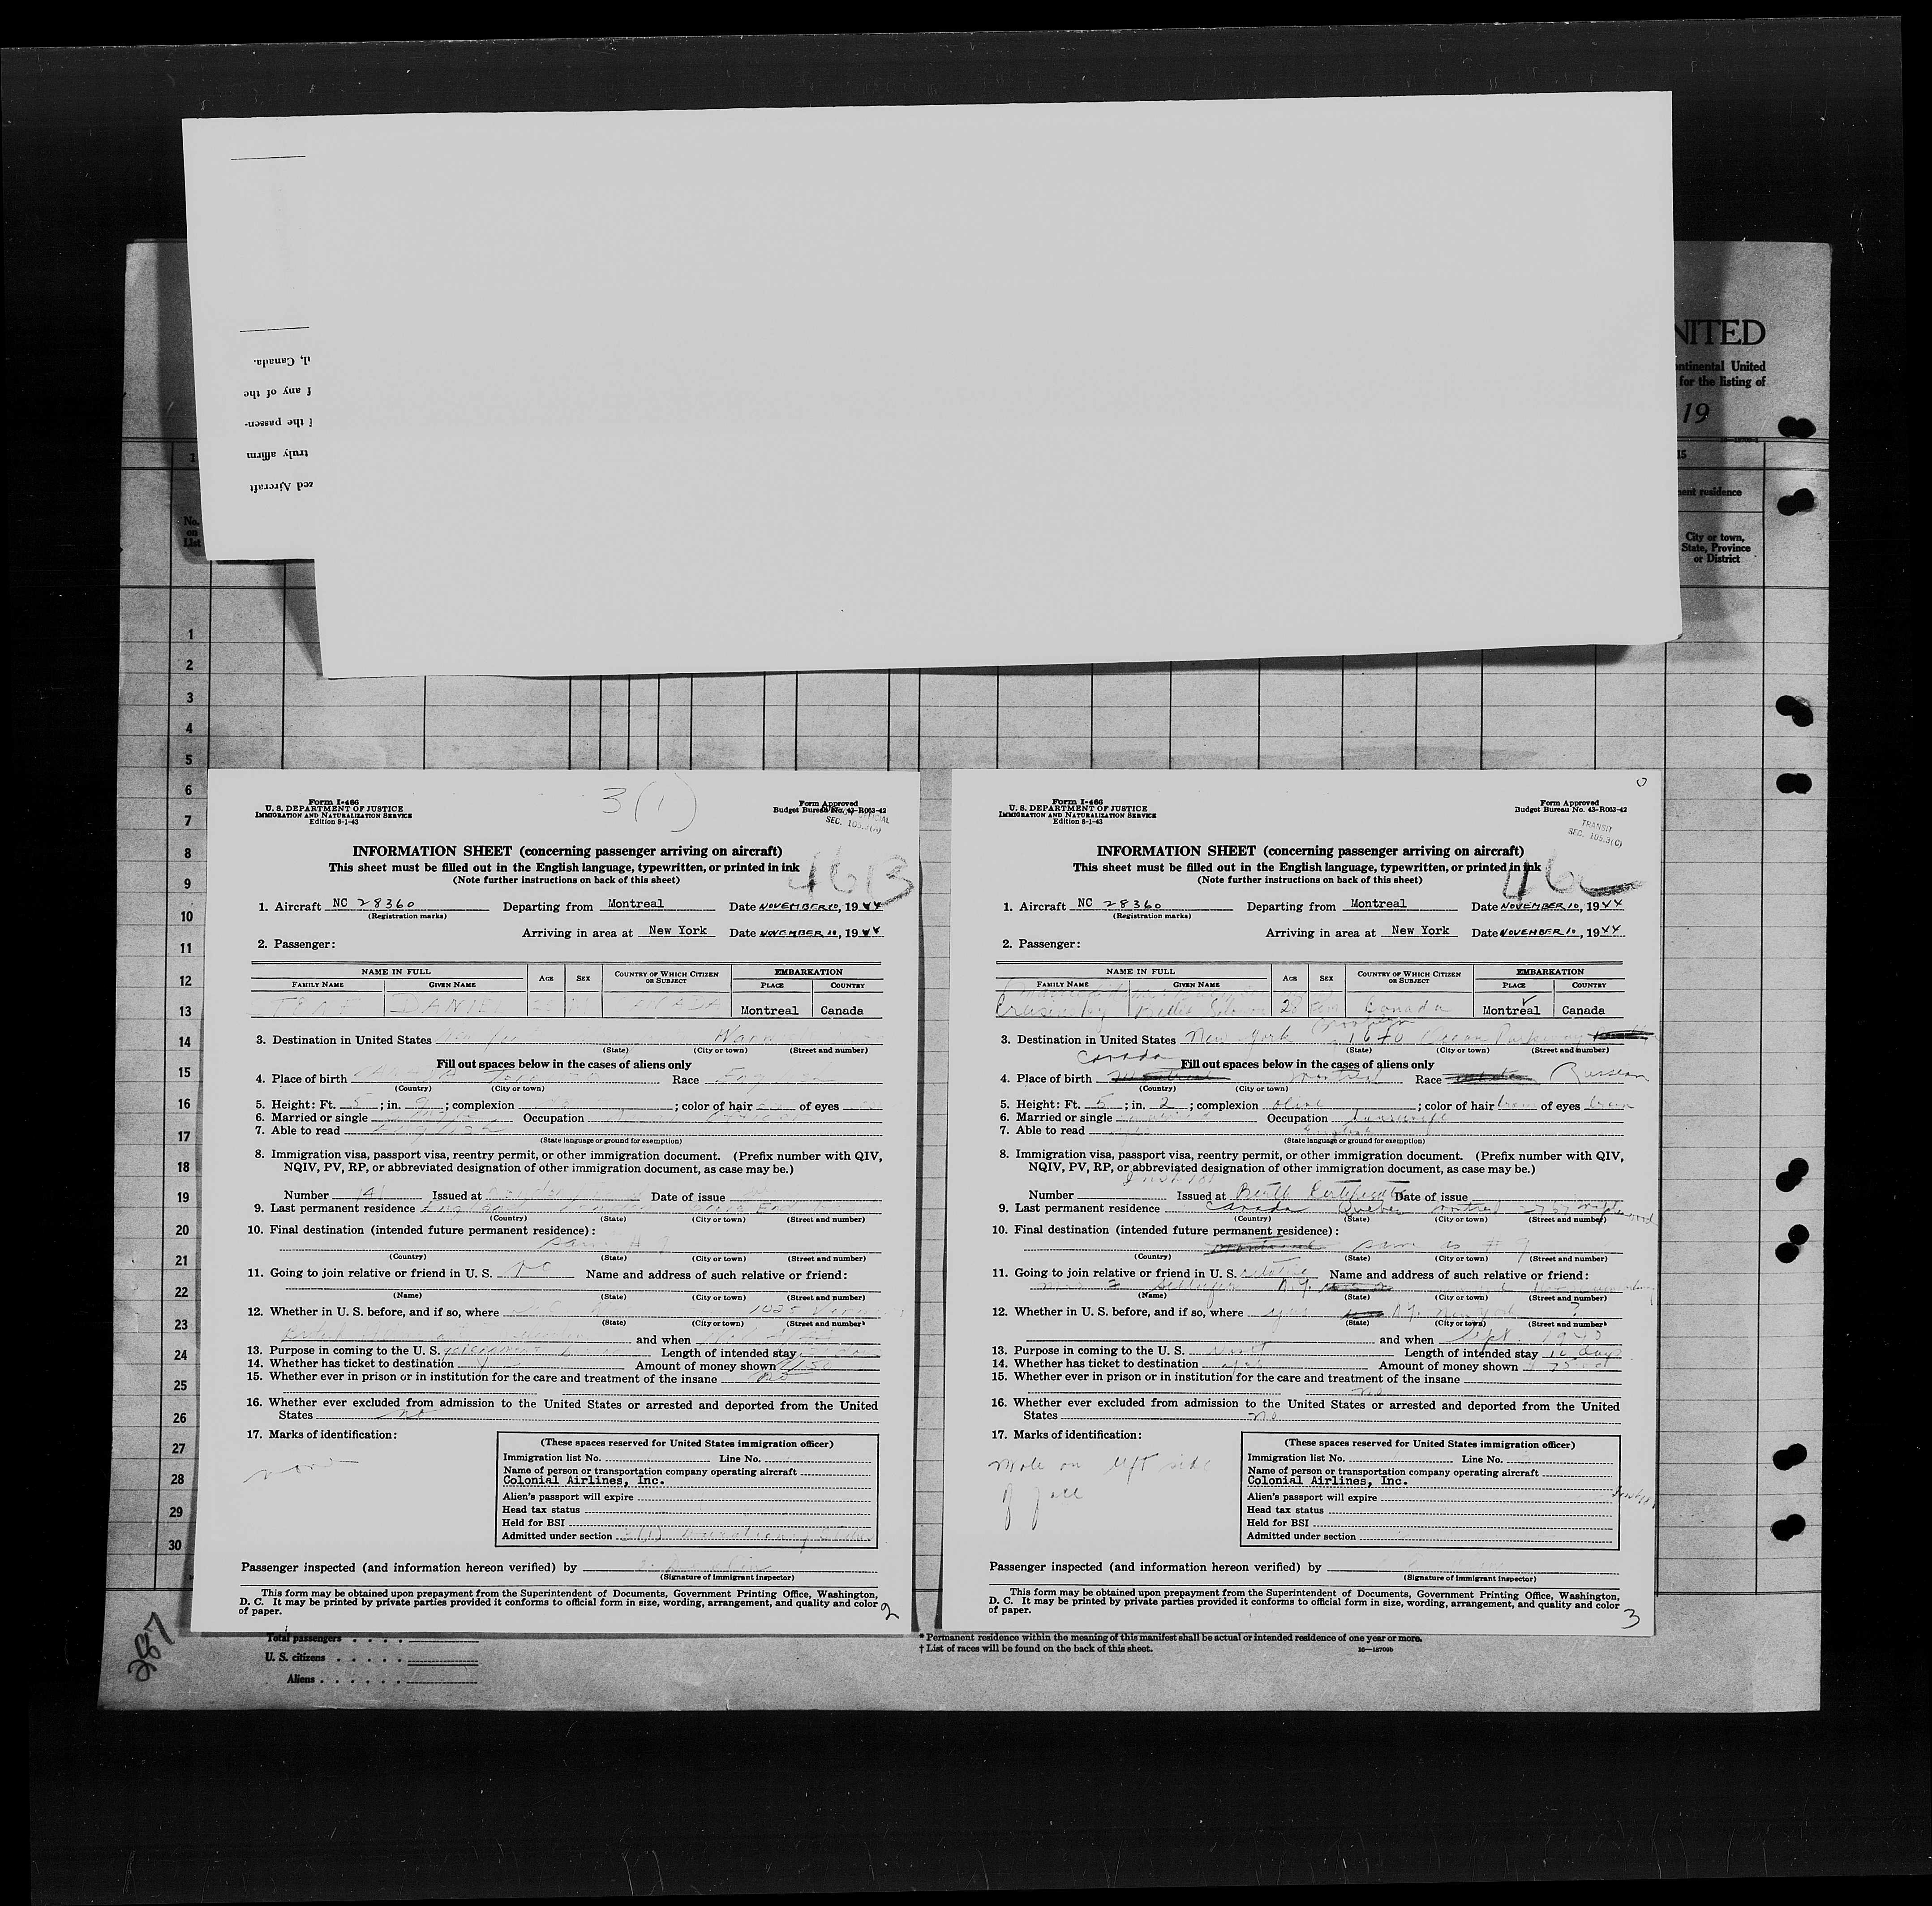 NITED
ontinental United
for the listing of
19
15
1
nent residence
No.
on
List
City or town,
State, Province
or District
l, Canada.
f any of the
f the passen-
truly affirm
zed Aircraft
1
2
3
4
5
6
7
8
9
10
11
12
13
14
15
16
17
18
19
20
21
22
23
24
25
26
27
28
29
30
3(1)
Form I-466
U. S. DEPARTMENT OF JUSTICE
IMMIGRATION AND NATURALIZATION SERVICE
Edition 8-1-43
Form Approved
Budget Bureau No. 43-R063-42
SEC. 105.3(A)
INFORMATION SHEET (concerning passenger arriving on aircraft)
This sheet must be filled out in the English language, typewritten, or printed in ink
(Note further instructions on back of this sheet)
1. Aircraft NC 28360 Departing from Montreal Date NOVEMBER 10, 1944
(Registration marks)
Arriving in area at New York Date NOVEMBER 10, 1944
2. Passenger:
NAME IN FULL AGE SEX COUNTRY OF WHICH CITIZEN OR SUBJECT EMBARKATION
FAMILY NAME GIVEN NAME PLACE COUNTRY
DANIEL CANADA Montreal Canada
3. Destination in United States
(State) (City or town) (Street and number)
Fill out spaces below in the cases of aliens only
4. Place of birth CANADA Race English
(Country) (City or town)
5. Height: Ft. 5; in. 9; complexion ; color of hair of eyes
6. Married or single Occupation
7. Able to read English
(State language or ground for exemption)
8. Immigration visa, passport visa, reentry permit, or other immigration document. (Prefix number with QIV,
NQIV, PV, RP, or abbreviated designation of other immigration document, as case may be.)
Number Issued at Date of issue
9. Last permanent residence England
(Country) (State) (City or town) (Street and number)
10. Final destination (intended future permanent residence):
same # 9
(Country) (State) (City or town) (Street and number)
11. Going to join relative or friend in U. S. no Name and address of such relative or friend:
(Name) (State) (City or town) (Street and number)
12. Whether in U. S. before, and if so, where 1025
(State) (City or town) (Street and number)
and when
13. Purpose in coming to the U. S. Length of intended stay
14. Whether has ticket to destination Amount of money shown
15. Whether ever in prison or in institution for the care and treatment of the insane no
16. Whether ever excluded from admission to the United States or arrested and deported from the United
States no
17. Marks of identification:
none
(These spaces reserved for United States immigration officer)
Immigration list No. Line No.
Name of person or transportation company operating aircraft
Colonial Airlines, Inc.
Alien's passport will expire
Head tax status
Held for BSI
Admitted under section 3(1)
Passenger inspected (and information hereon verified) by
(Signature of immigrant inspector)
This form may be obtained upon prepayment from the Superintendent of Documents, Government Printing Office, Washington,
D. C. It may be printed by private parties provided it conforms to official form in size, wording, arrangement, and quality and color
of paper.
2
Form I-466
U. S. DEPARTMENT OF JUSTICE
IMMIGRATION AND NATURALIZATION SERVICE
Edition 8-1-43
Form Approved
Budget Bureau No. 43-R063-42
TRANSIT
SEC. 105.3(C)
INFORMATION SHEET (concerning passenger arriving on aircraft)
This sheet must be filled out in the English language, typewritten, or printed in ink
(Note further instructions on back of this sheet)
1. Aircraft NC 28360 Departing from Montreal Date NOVEMBER 10, 1944
(Registration marks)
Arriving in area at New York Date NOVEMBER 10, 1944
2. Passenger:
NAME IN FULL AGE SEX COUNTRY OF WHICH CITIZEN OR SUBJECT EMBARKATION
FAMILY NAME GIVEN NAME PLACE COUNTRY
28 Fem Canada Montreal Canada
Brooklyn
3. Destination in United States New York 1670 Ocean Parkway
(State) (City or town) (Street and number)
Canada
Fill out spaces below in the cases of aliens only
4. Place of birth Montreal Race Russian
(Country) (City or town)
5. Height: Ft. 5; in. 2; complexion olive; color of hair brown of eyes brown
6. Married or single Occupation housewife
7. Able to read English
(State language or ground for exemption)
8. Immigration visa, passport visa, reentry permit, or other immigration document. (Prefix number with QIV,
NQIV, PV, RP, or abbreviated designation of other immigration document, as case may be.)
Number Issued at Birth Certificate Date of issue
9. Last permanent residence Canada Quebec Montreal
(Country) (State) (City or town) (Street and number)
10. Final destination (intended future permanent residence):
same as # 9
(Country) (State) (City or town) (Street and number)
11. Going to join relative or friend in U. S. relative Name and address of such relative or friend:
N.Y.
(Name) (State) (City or town) (Street and number)
12. Whether in U. S. before, and if so, where yes N.Y. New York ?
(State) (City or town) (Street and number)
and when Sept. 1940
13. Purpose in coming to the U. S. visit Length of intended stay 10 days
14. Whether has ticket to destination yes Amount of money shown
15. Whether ever in prison or in institution for the care and treatment of the insane
no
16. Whether ever excluded from admission to the United States or arrested and deported from the United
States no
17. Marks of identification:
Mole on left side
of face
(These spaces reserved for United States immigration officer)
Immigration list No. Line No.
Name of person or transportation company operating aircraft
Colonial Airlines, Inc.
Alien's passport will expire
Head tax status
Held for BSI
Admitted under section
Passenger inspected (and information hereon verified) by
(Signature of immigrant inspector)
This form may be obtained upon prepayment from the Superintendent of Documents, Government Printing Office, Washington,
D. C. It may be printed by private parties provided it conforms to official form in size, wording, arrangement, and quality and color
of paper.
3
287
Total passengers
U. S. citizens
Aliens
* Permanent residence within the meaning of this manifest shall be actual or intended residence of one year or more.
† List of races will be found on the back of this sheet.
16—18709b